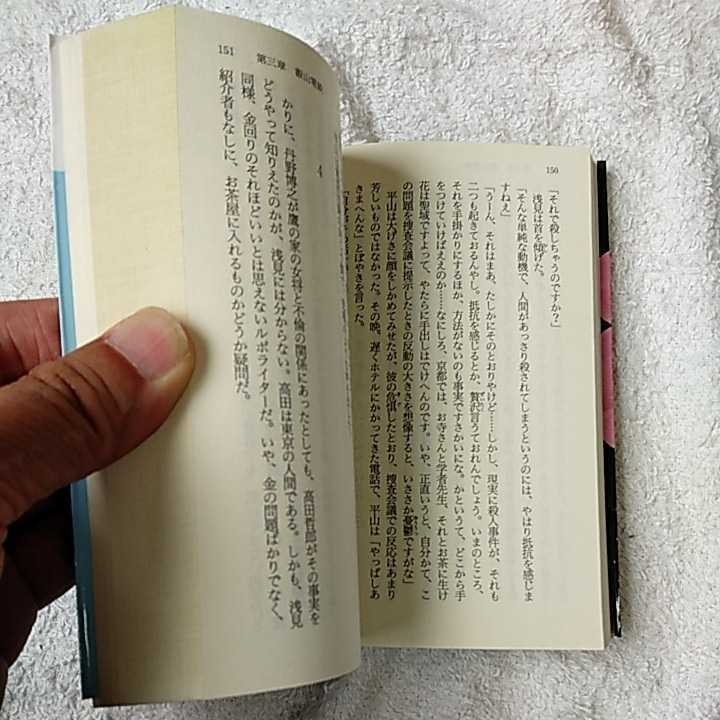 150
「それで殺しちゃうのですか？」
浅見は首を傾げた。
「そんな単純な動機で、人間があっさり殺されてしまうというのには、やはり抵抗を感じま
すねえ」
「うーん、それはまあ、たしかにそのとおりやけど……しかし、現実に殺人事件が、それも
二つも起きておるんやし。抵抗を感じるとか、贅沢言うておれんでしょう。いまのところ、
それを手掛かりにするほか、方法がないのも事実ですさかいにな。かというて、どこから手
をつけていけばええのか……なにしろ、京都では、お寺さんと学者先生、それとお茶に生け
花は聖域ですよって、やたらに手出しはでけへんのです。いや、正直いうと、自分かて、こ
の問題を捜査会議に提示したときの反動の大きさを想像すると、いささか憂鬱ですがな」
平山は大げさに顔をしかめてみせたが、彼の危惧したとおり、捜査会議での反応はあまり
芳しいものではなかった。その晩、遅くホテルにかかってきた電話で、平山は「やっぱしあ
きまへんな」とぼやきを言った。
151
第三章　叡山電鉄
4
かりに、丹野博之が鷹の家の女将と不倫の関係にあったとしても、高田哲郎がその事実を
どうやって知りえたのかが、浅見には分からない。高田は東京の人間である。しかも、浅見
同様、金回りのそれほどいいとは思えないルポライターだ。いや、金の問題ばかりでなく、
紹介者もなしに、お茶屋に入れるものかどうか疑問だ。